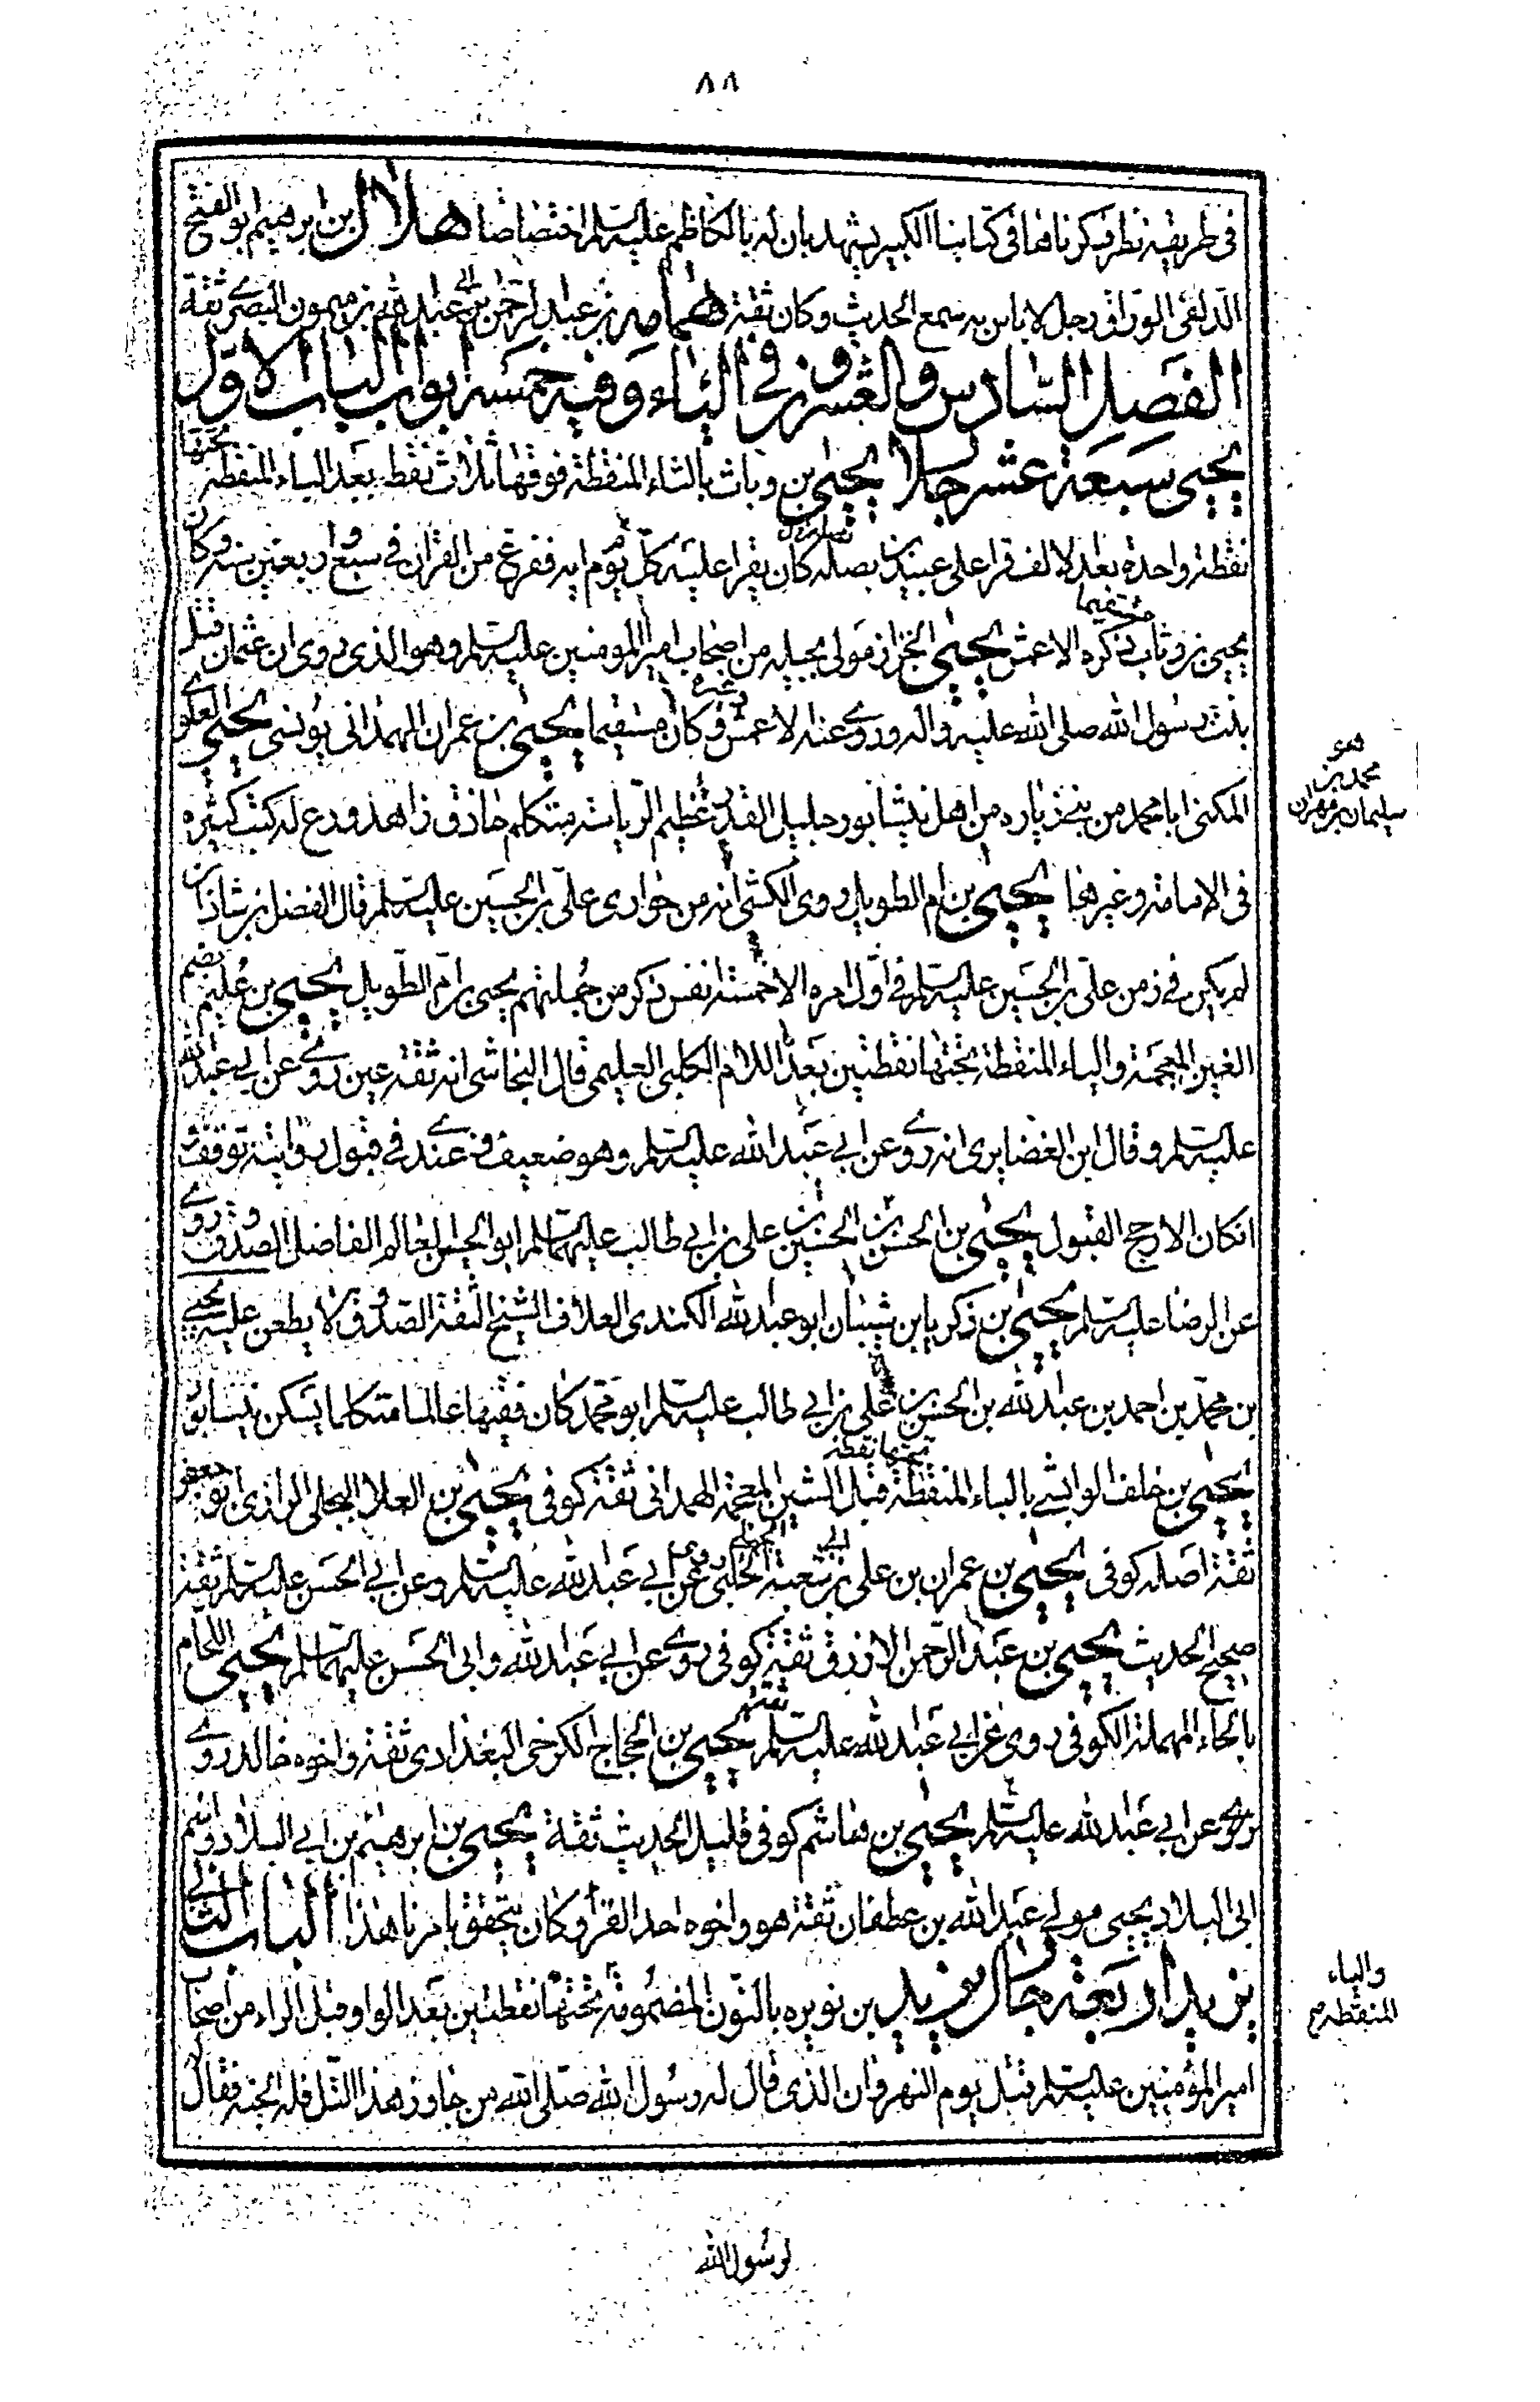 ٨٨
في طريقه نظر ذكرناها في كتابنا الكبير يشهد بان له بالكاظم عليه السلم اختصاصا هلال بن ابرهيم ابو الفتح
الدلفي الوراق رجل لا باس به سمع الحديث وكان ثقة هماهم بن عبد الرحمن بن ابي عبد الله بن ميمون البصري ثقة
الفصل السادس والعشرون في الياء وفيه خمسة ابواب الباب الاول
يحيى سبعة عشر رجلا يحيى بن وثاب بالثاء المنقطة فوقها ثلاث نقط بعد الباء المنقطة تحتها
نقطة واحدة بعد الالف قرا على عبيد بن نضلة كان يقرا عليه كل يوم اية ففرغ من القران في سبع واربعين سنة وكان
يحيى بن وثاب مستقيما ذكره الاعمش يحيى الخزاز مولى بجيلة من اصحاب امير المومنين عليه السلم وهو الذي روى ان عثمان قتل
بنت رسول الله صلى الله عليه واله وروى عنه الاعمش وغيره وكان مستقيما يحيى بن عمران الهمداني يونسي يحيى العلوي
المكنى ابا محمد من بني زباره من اهل نيشابور جليل القدر عظيم الرياسة متكلم حاذق زاهد ورع له كتب كثيرة
في الامامة وغيرها يحيى بن ام الطويل روى الكشي انه من حواري علي بن الحسين عليه السلم قال الفضل بن شاذان
لم يكن في زمن علي بن الحسين عليه السلم في اول امره الا خمسة انفس ذكر من جملتهم يحيى بن ام الطويل يحيى بن عليم بضم
الغين المعجمة والياء المنقطة تحتها نقطتين بعد اللام الكلبي العليمي قال النجاشي انه ثقة عين روى عن ابي عبد الله
عليه السلم وقال ابن الغضايري انه روى عن ابي عبد الله عليه السلم وهو ضعيف فعندي في قبول روايته توقف
ان كان الارجح القبول يحيى بن الحسن بن الحسين بن علي بن ابي طالب عليهما السلم ابو الحسن العالم الفاضل الصدوق وروى
عن الرضا عليه السلم يحيى بن زكريا بن شيبان ابو عبد الله الكندي العلاف الشيخ الثقة الصدوق لا يطعن عليه يحيى
بن محمد بن احمد بن عبد الله بن الحسن بن علي بن ابي طالب عليه السلم ابو محمد كان فقيها عالما متكلما يسكن نيسابور
يحيى بن خلف الوابشي بالباء المنقطة تحتها نقطة قبل الشين المعجمة الهمداني ثقة كوفي يحيى بن العلا البجلي الرازي ابو جعفر
ثقة اصله كوفي يحيى بن عمران بن علي بن ابي شعبة الحلبي روى عن ابي عبد الله عليه السلم وعن ابي الحسن عليه السلم ثقة
صحيح الحديث يحيى بن عبد الرحمن الازرق ثقة كوفي روى عن ابي عبد الله وابي الحسن عليهما السلم يحيى اللحام
بالحاء المهملة الكوفي روى عن ابي عبد الله عليه السلم ثقة يحيى بن الحجاج الكرخي البغدادي ثقة واخوه خالد روى
عن ابي عبد الله عليه السلم يحيى بن هاشم كوفي قليل الحديث ثقة يحيى بن ابرهيم بن ابي البلاد واسم
ابي البلاد يحيى مولى عبد الله بن غطفان ثقة هو واخوه احد القرا وكان يتحقق بامرنا هذا الباب الثاني
يزيد اربعة رجال يزيد بن نويره بالنون المضمومة تحتها نقطتين بعد الواو وقبل الراء من اصحاب
امير المؤمنين عليه السلم قتل يوم النهروان الذي قال له رسول الله صلى الله من جاوز هذا التل فله الجنة فقال
لرسول الله
هو
محمد بن
سليمان بن مهران
والياء
المنقطة